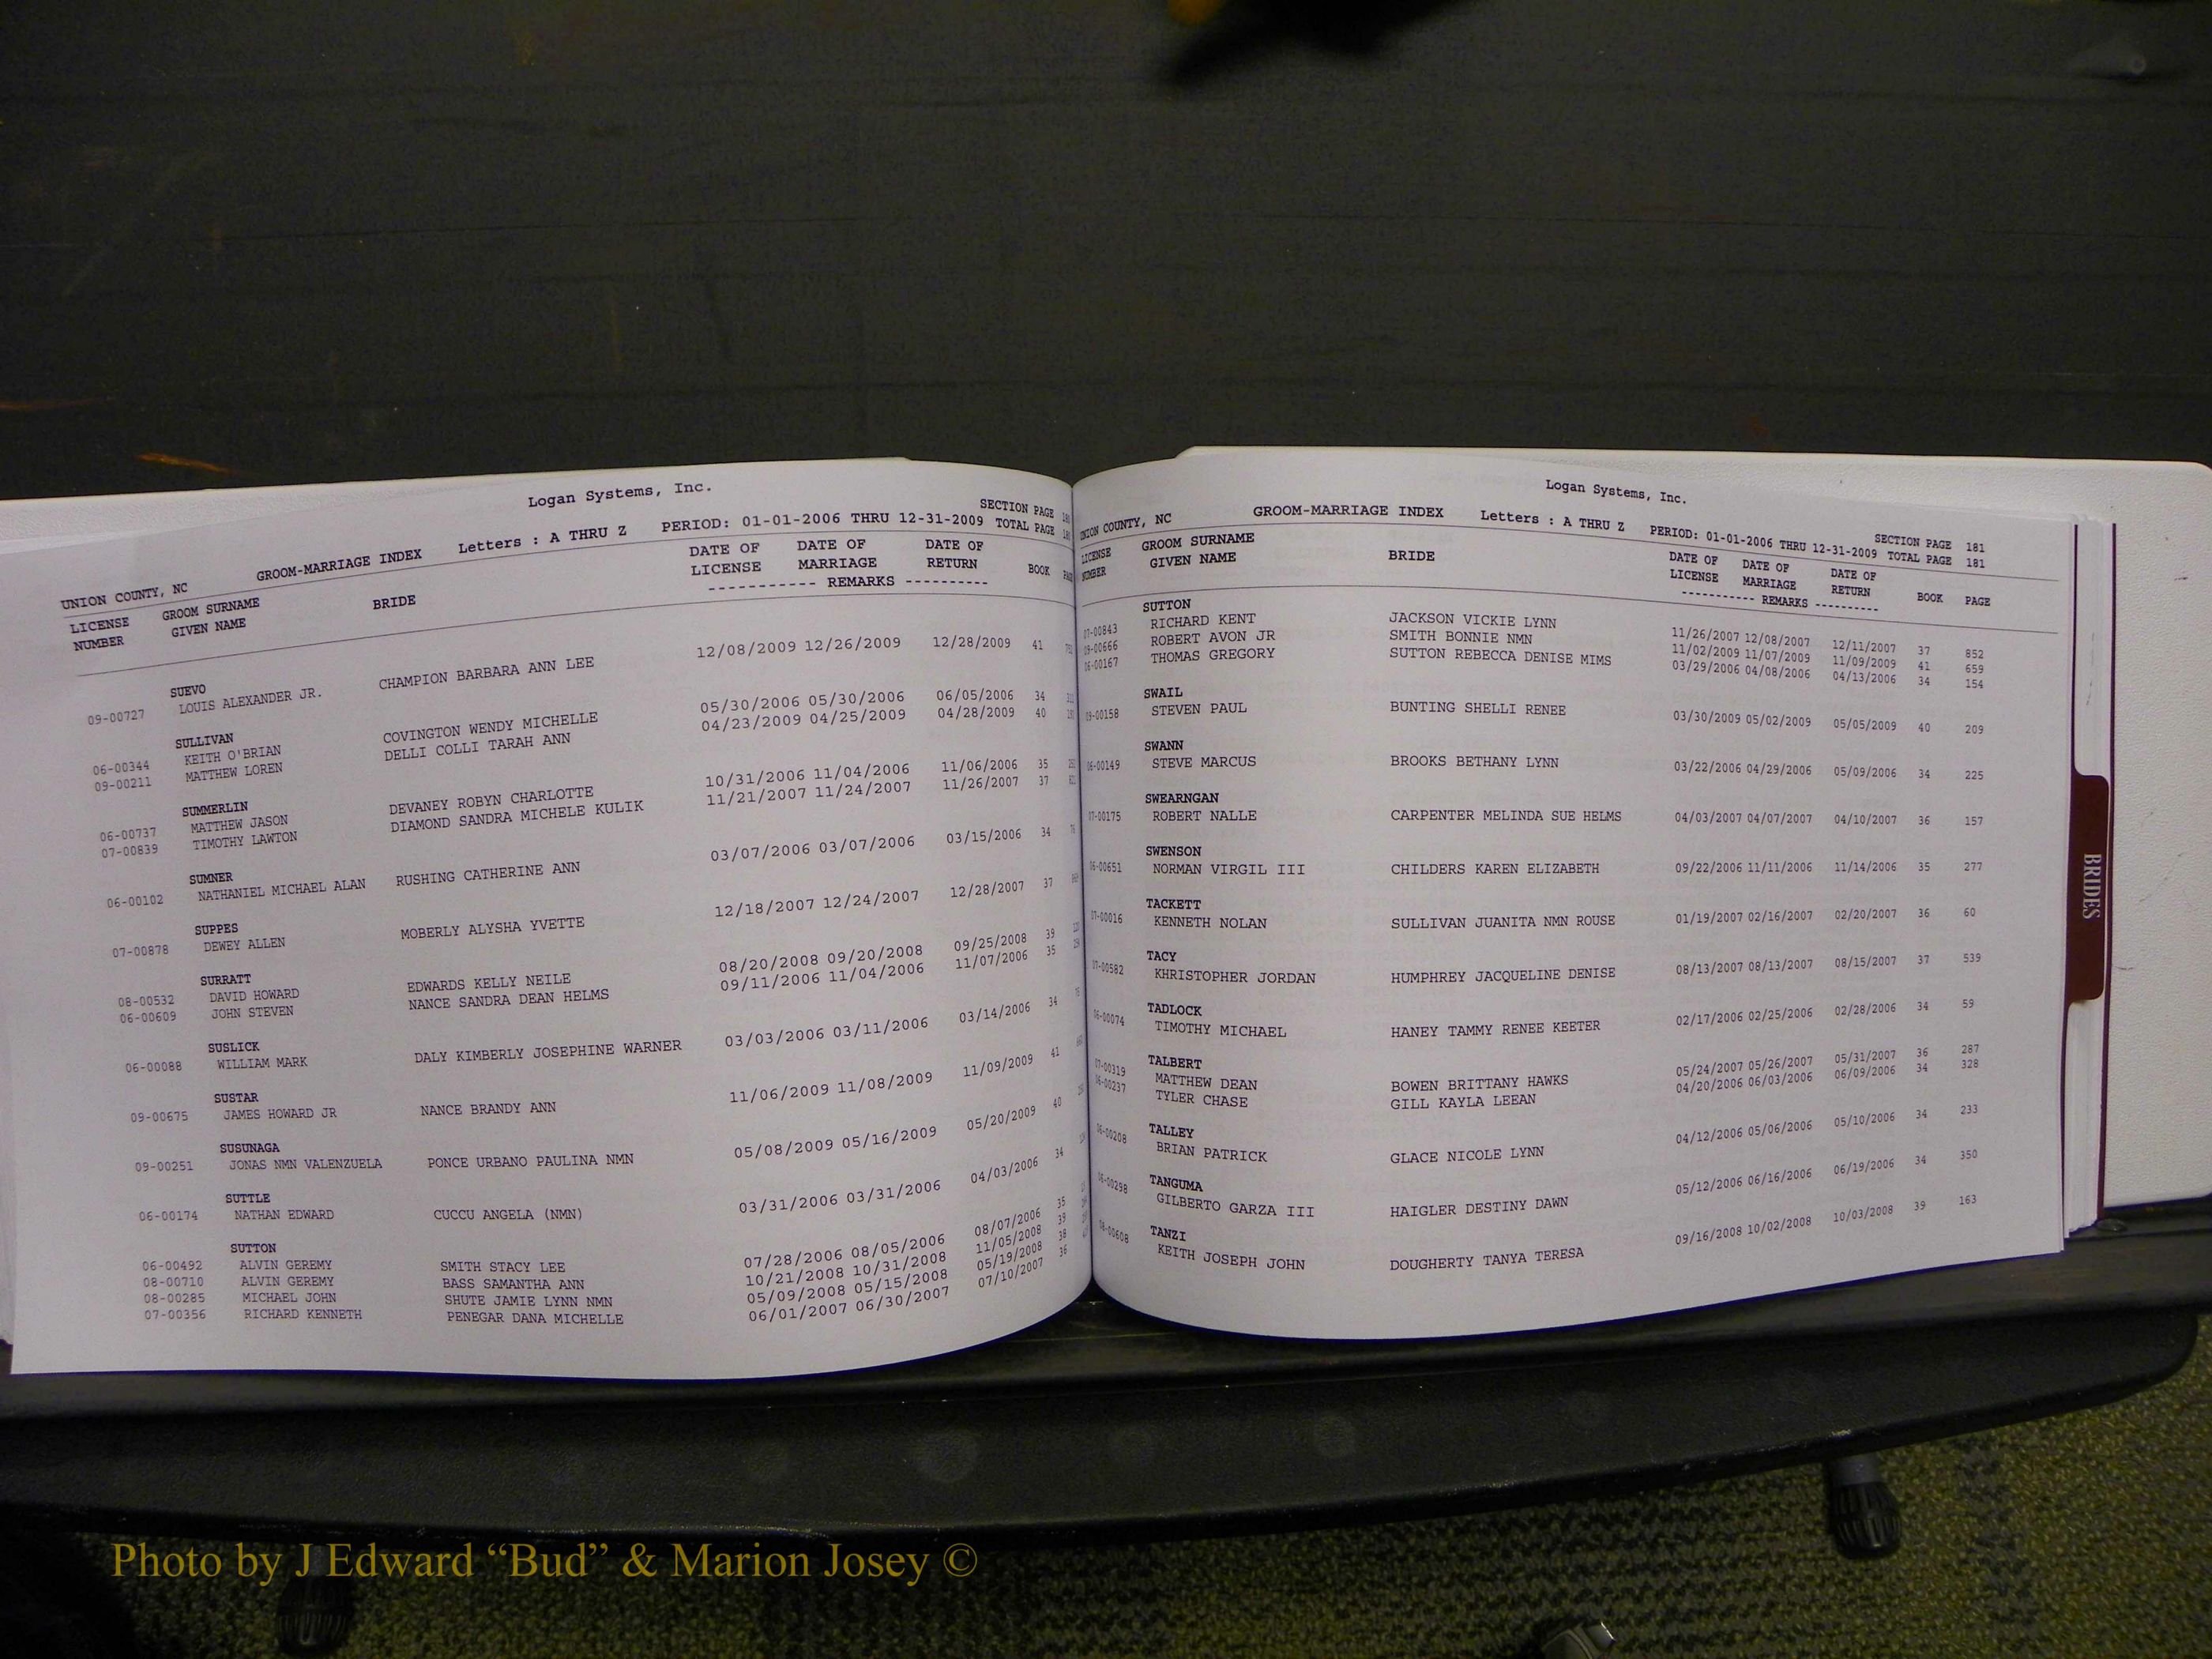 Logan Systems, Inc.
UNION COUNTY, NC GROOM-MARRIAGE INDEX Letters : A THRU Z PERIOD: 01-01-2006 THRU 12-31-2009 SECTION PAGE
TOTAL PAGE
LICENSE NUMBER GROOM SURNAME GIVEN NAME BRIDE DATE OF LICENSE DATE OF MARRIAGE DATE OF RETURN BOOK
----------- REMARKS ----------
SUEVO
09-00727 LOUIS ALEXANDER JR. CHAMPION BARBARA ANN LEE 12/08/2009 12/26/2009 12/28/2009 41
SULLIVAN
06-00344 KEITH O'BRIAN COVINGTON WENDY MICHELLE 05/30/2006 05/30/2006 06/05/2006 34
09-00211 MATTHEW LOREN DELLI COLLI TARAH ANN 04/23/2009 04/25/2009 04/28/2009 40
SUMMERLIN
06-00737 MATTHEW JASON DEVANEY ROBYN CHARLOTTE 10/31/2006 11/04/2006 11/06/2006 35
07-00839 TIMOTHY LAWTON DIAMOND SANDRA MICHELE KULIK 11/21/2007 11/24/2007 11/26/2007 37
SUMNER
06-00102 NATHANIEL MICHAEL ALAN RUSHING CATHERINE ANN 03/07/2006 03/07/2006 03/15/2006 34
SUPPES
07-00878 DEWEY ALLEN MOBERLY ALYSHA YVETTE 12/18/2007 12/24/2007 12/28/2007 37
SURRATT
08-00532 DAVID HOWARD EDWARDS KELLY NEILE 08/20/2008 09/20/2008 09/25/2008 39
06-00609 JOHN STEVEN NANCE SANDRA DEAN HELMS 09/11/2006 11/04/2006 11/07/2006 35
SUSLICK
06-00088 WILLIAM MARK DALY KIMBERLY JOSEPHINE WARNER 03/03/2006 03/11/2006 03/14/2006 34
SUSTAR
09-00675 JAMES HOWARD JR NANCE BRANDY ANN 11/06/2009 11/08/2009 11/09/2009 41
SUSUNAGA
09-00251 JONAS NMN VALENZUELA PONCE URBANO PAULINA NMN 05/08/2009 05/16/2009 05/20/2009 40
SUTTLE
06-00174 NATHAN EDWARD CUCCU ANGELA (NMN) 03/31/2006 03/31/2006 04/03/2006 34
SUTTON
06-00492 ALVIN GEREMY SMITH STACY LEE 07/28/2006 08/05/2006 08/07/2006 35
08-00710 ALVIN GEREMY BASS SAMANTHA ANN 10/21/2008 10/31/2008 11/05/2008 39
08-00285 MICHAEL JOHN SHUTE JAMIE LYNN NMN 05/09/2008 05/15/2008 05/19/2008 38
07-00356 RICHARD KENNETH PENEGAR DANA MICHELLE 06/01/2007 06/30/2007 07/10/2007 36
Logan Systems, Inc.
UNION COUNTY, NC GROOM-MARRIAGE INDEX Letters : A THRU Z PERIOD: 01-01-2006 THRU 12-31-2009 SECTION PAGE 181
TOTAL PAGE 181
LICENSE NUMBER GROOM SURNAME GIVEN NAME BRIDE DATE OF LICENSE DATE OF MARRIAGE DATE OF RETURN BOOK PAGE
----------- REMARKS ----------
SUTTON
07-00843 RICHARD KENT JACKSON VICKIE LYNN 11/26/2007 12/08/2007 12/11/2007 37 852
09-00666 ROBERT AVON JR SMITH BONNIE NMN 11/02/2009 11/07/2009 11/09/2009 41 659
06-00167 THOMAS GREGORY SUTTON REBECCA DENISE MIMS 03/29/2006 04/08/2006 04/13/2006 34 154
SWAIL
09-00158 STEVEN PAUL BUNTING SHELLI RENEE 03/30/2009 05/02/2009 05/05/2009 40 209
SWANN
06-00149 STEVE MARCUS BROOKS BETHANY LYNN 03/22/2006 04/29/2006 05/09/2006 34 225
SWEARNGAN
07-00175 ROBERT NALLE CARPENTER MELINDA SUE HELMS 04/03/2007 04/07/2007 04/10/2007 36 157
SWENSON
06-00651 NORMAN VIRGIL III CHILDERS KAREN ELIZABETH 09/22/2006 11/11/2006 11/14/2006 35 277
TACKETT
07-00016 KENNETH NOLAN SULLIVAN JUANITA NMN ROUSE 01/19/2007 02/16/2007 02/20/2007 36 60
TACY
07-00582 KHRISTOPHER JORDAN HUMPHREY JACQUELINE DENISE 08/13/2007 08/13/2007 08/15/2007 37 539
TADLOCK
06-00074 TIMOTHY MICHAEL HANEY TAMMY RENEE KEETER 02/17/2006 02/25/2006 02/28/2006 34 59
TALBERT
07-00319 MATTHEW DEAN BOWEN BRITTANY HAWKS 05/24/2007 05/26/2007 05/31/2007 36 287
06-00237 TYLER CHASE GILL KAYLA LEEAN 04/20/2006 06/03/2006 06/09/2006 34 328
TALLEY
06-00208 BRIAN PATRICK GLACE NICOLE LYNN 04/12/2006 05/06/2006 05/10/2006 34 233
TANGUMA
06-00298 GILBERTO GARZA III HAIGLER DESTINY DAWN 05/12/2006 06/16/2006 06/19/2006 34 350
TANZI
08-00608 KEITH JOSEPH JOHN DOUGHERTY TANYA TERESA 09/16/2008 10/02/2008 10/03/2008 39 163
BRIDES
Photo by J Edward “Bud” & Marion Josey ©